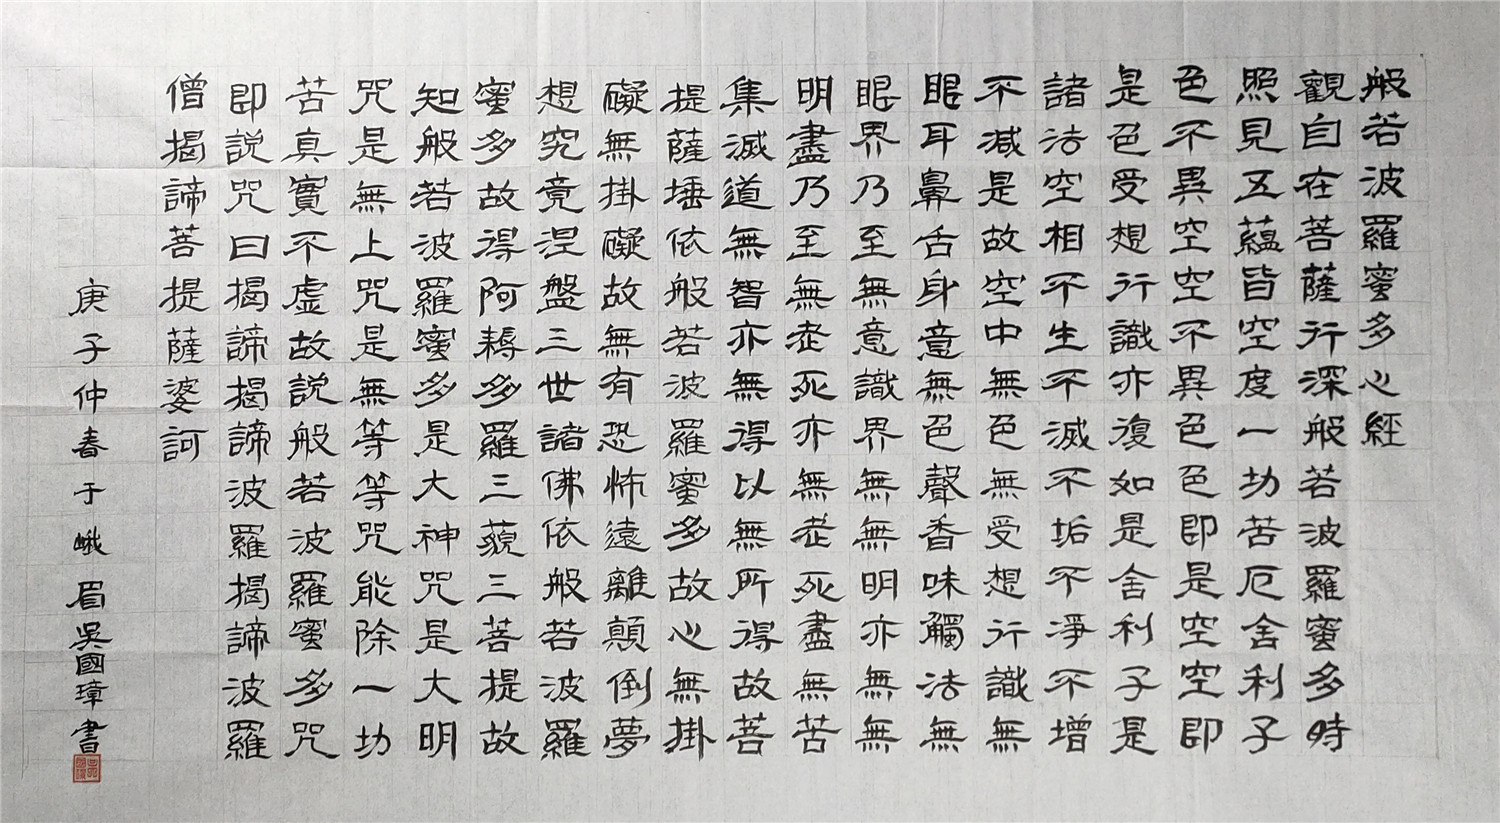 般若波羅蜜多心經
觀自在菩薩行深般若波羅蜜多時
照見五蘊皆空度一切苦厄舍利子
色不異空空不異色色即是空空即
是色受想行識亦復如是舍利子是
諸法空相不生不滅不垢不淨不增
不減是故空中無色無受想行識無
眼耳鼻舌身意無色聲香味觸法無
眼界乃至無意識界無無明亦無無
明盡乃至無老死亦無老死盡無苦
集滅道無智亦無得以無所得故菩
提薩埵依般若波羅蜜多故心無掛
礙無掛礙故無有恐怖遠離顛倒夢
想究竟涅盤三世諸佛依般若波羅
蜜多故得阿耨多羅三藐三菩提故
知般若波羅蜜多是大神咒是大明
咒是無上咒是無等等咒能除一切
苦真實不虛故說般若波羅蜜多咒
即說咒曰揭諦揭諦波羅揭諦波羅
僧揭諦菩提薩婆訶
庚子仲春于峨眉吳國璋書